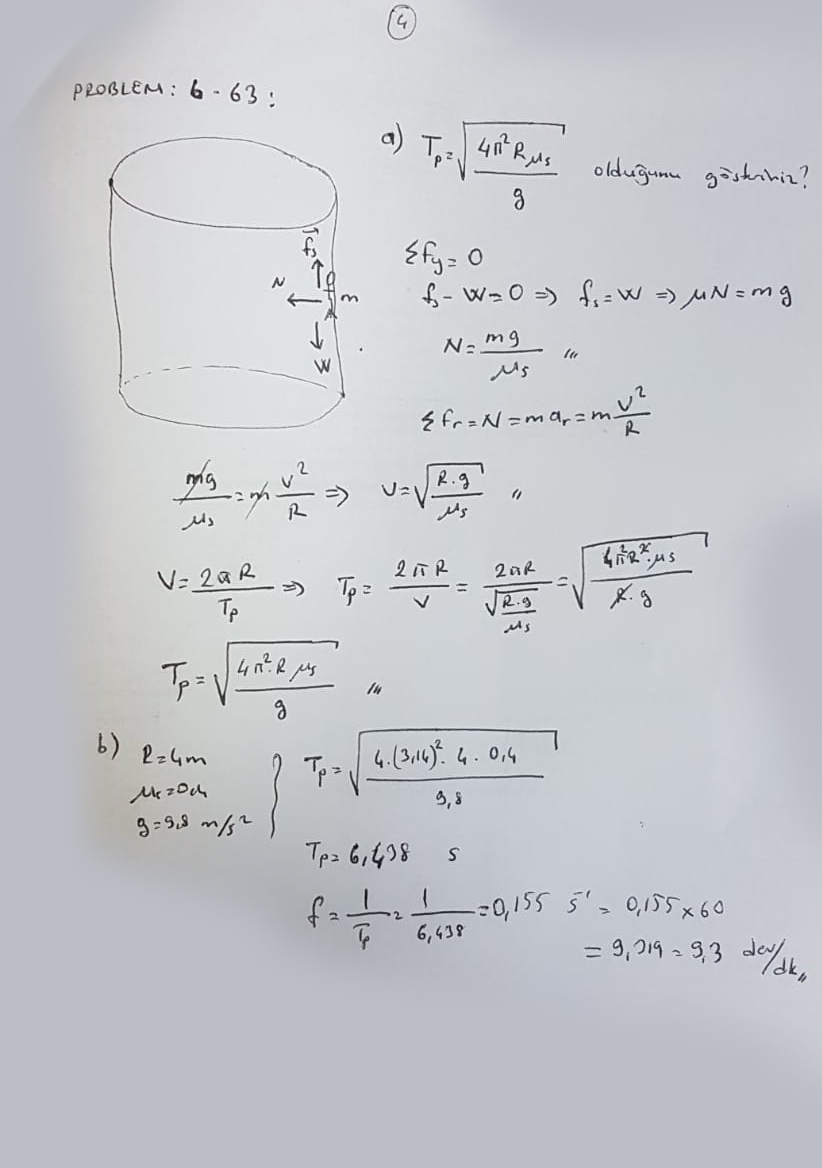 4
PROBLEM: 6-63:
a) Tp = √(4π²Rμs / g) olduğunu gösteriniz?
fs
N
m
W
Σfy = 0
fs - W = 0 => fs = W => μN = mg
N = mg / μs
Σfr = N = mar = m V² / R
mg / μs = m V² / R => V = √(R.g / μs)
V = 2πR / Tp => Tp = 2πR / V = 2πR / √(R.g / μs) = √(4π²R².μs / R.g)
Tp = √(4π².R μs / g)
b) R = 4m
μs = 0,4
g = 9,8 m/s²
Tp = √(4.(3,14)².4.0,4 / 9,8)
Tp = 6,438 s
f = 1 / Tp = 1 / 6,438 = 0,155 s⁻¹ = 0,155 x 60
= 9,319 = 9,3 dev/dk